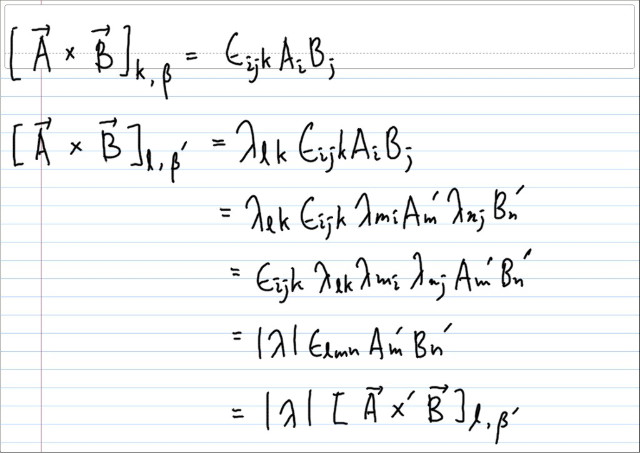 [A⃗ × B⃗]ₖ,ᵦ = ϵᵢⱼₖ Aᵢ Bⱼ
[A⃗ × B⃗]_{l,β'} = λ_{lk} ϵ_{ijk} A_i B_j
= λ_{lk} ϵ_{ijk} λ_{mi} A_m' λ_{nj} B_n'
= ϵ_{ijk} λ_{lk} λ_{mi} λ_{nj} A_m' B_n'
= |λ| ϵ_{lmn} A_m' B_n'
= |λ| [A⃗ ×' B⃗]_{l,β'}